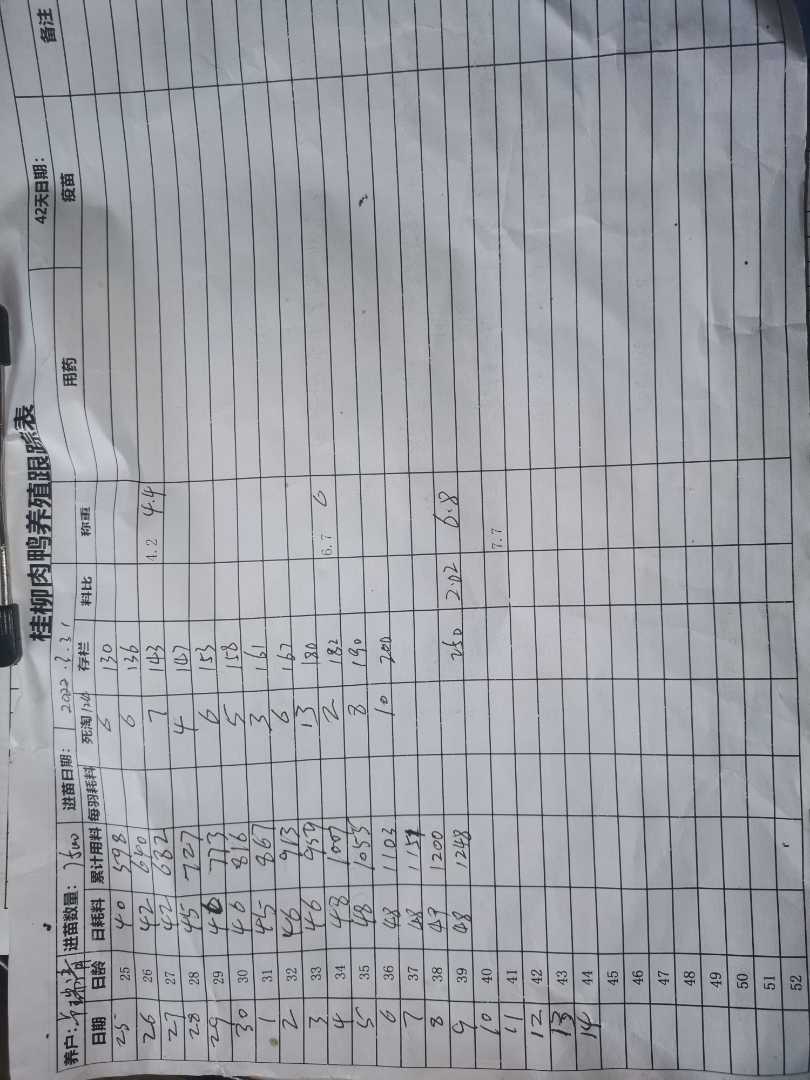 桂柳肉鸭养殖跟踪表
养户: 进苗数量: 7500 进苗日期: 2022.3.31 42天日期:
日期 日龄 日耗料 累计用料 每羽耗料 死淘124 存栏 料比 称重 用药 疫苗 备注
25 25 40 598 6 130
26 26 42 640 6 136 4.2 4.4
27 27 42 682 7 143
28 28 45 727 4 147
29 29 46 773 6 153
30 30 46 816 5 158
1 31 45 867 3 161
2 32 46 913 6 167
3 33 46 959 13 180 6.7 6
4 34 48 1007 2 182
5 35 48 1055 8 190
6 36 48 1103 10 200
7 37 48 1151
8 38 49 1200
9 39 48 1248 250 2.02 6.8
10 40 7.7
11 41
12 42
13 43
14 44
45
46
47
48
49
50
51
52